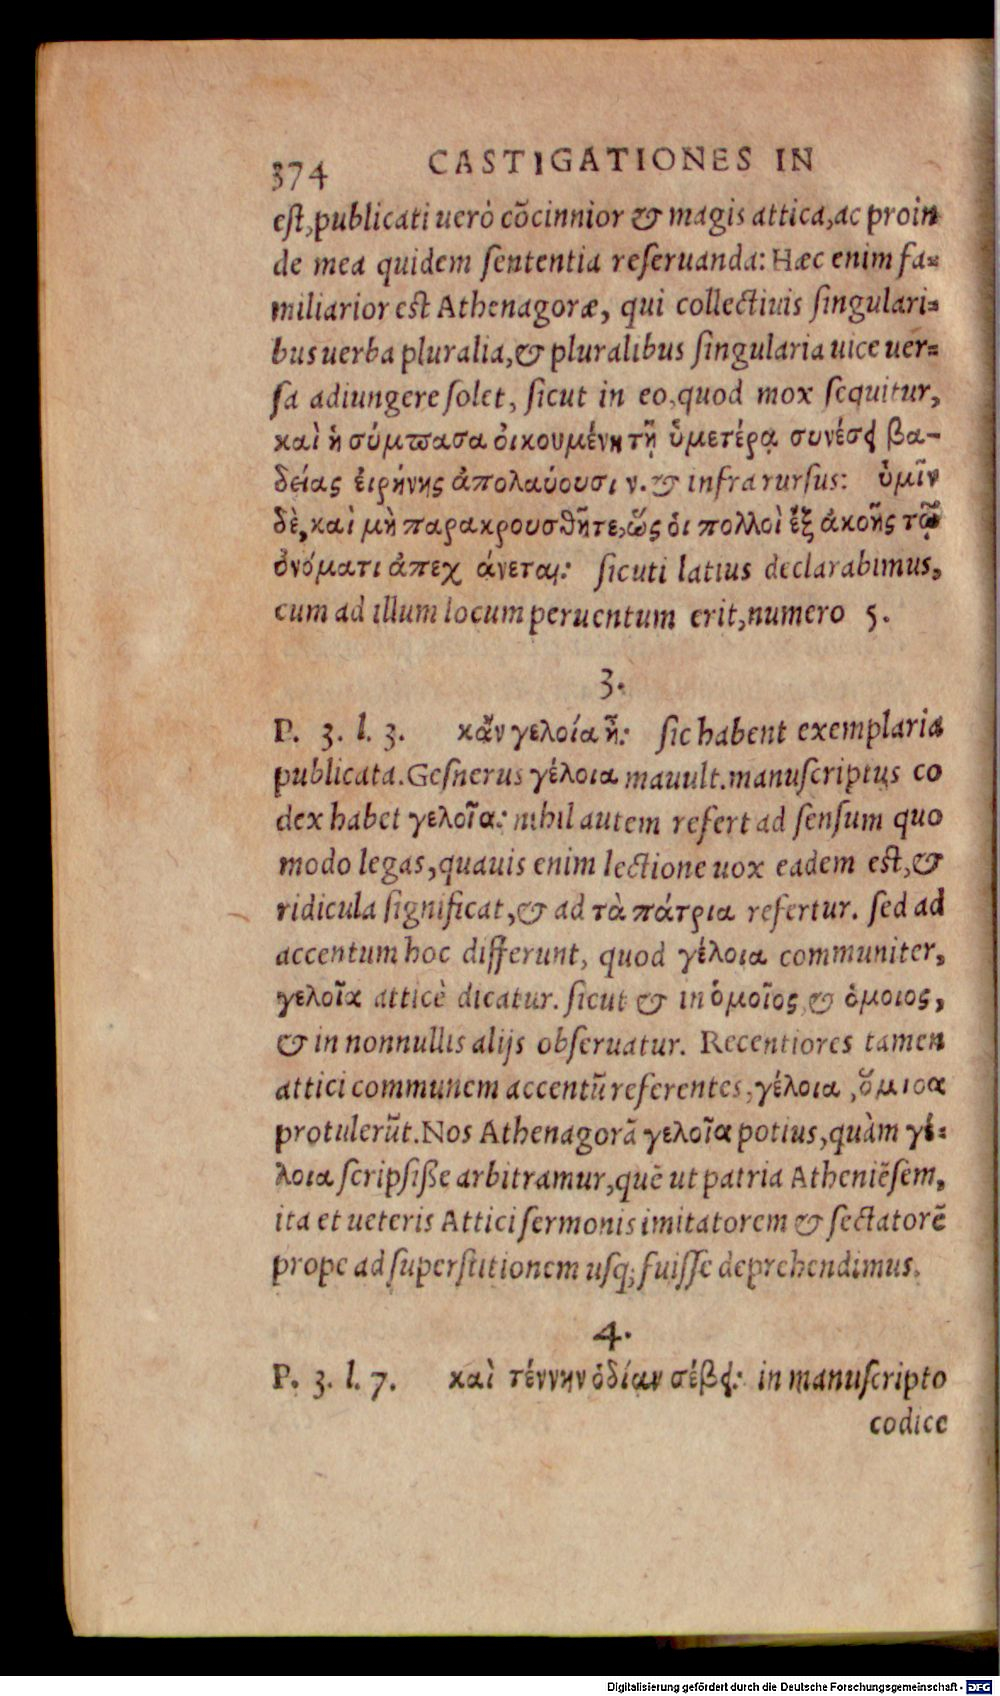 374 CASTIGATIONES IN
est, publicati uerò cõcinnior & magis attica, ac proin
de mea quidem sententia reseruanda: Hæc enim fa=
miliarior est Athenagoræ, qui collectiuis singulari=
bus uerba pluralia, & pluralibus singularia uice uer=
sa adiungere solet, sicut in eo, quod mox sequitur,
καὶ ἡ σύμπασα ὀικουμένη τῇ ὑμετέρᾳ συνέσει βα-
δείας ἐιρήνης ἀπολαύουσι ν. & infra rursus: ὑμῖν
δὲ, καὶ μὴ παρακρουσθῆτε, ὥς ὁι πολλοὶ ἐξ ἀκοῆς τῷ
ὀνόματι ἀπεχ άνεται: sicuti latius declarabimus,
cum ad illum locum peruentum erit, numero 5.
3.
P. 3. l. 3. κἄν γελοία ᾖ: sic habent exemplaria
publicata. Gesnerus γέλοια mauult. manuscriptus co
dex habet γελοῖα: nihil autem refert ad sensum quo
modo legas, quauis enim lectione uox eadem est, &
ridicula significat, & ad τὰ πάτρια refertur. sed ad
accentum hoc differunt, quod γέλοια communiter,
γελοῖα atticè dicatur. sicut & in ὁμοῖος, & ὁμοιος,
& in nonnullis alijs obseruatur. Recentiores tamen
attici communem accentũ referentes, γέλοια, ὅμιοα
protulerũt. Nos Athenagorã γελοῖα potius, quàm γέ=
λοια scripsiße arbitramur, quẽ ut patria Atheniẽsem,
ita et ueteris Attici sermonis imitatorem & sectatorẽ
prope ad superstitionem usq; fuisse deprehendimus.
4.
P. 3. l. 7. καὶ τέννην ὁδίαν σέβει: in manuscripto
codice
Digitalisierung gefördert durch die Deutsche Forschungsgemeinschaft - DFG